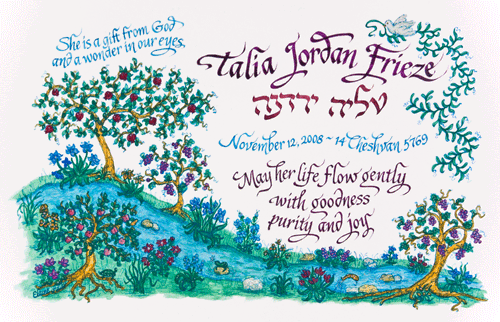 She is a gift from God
and a wonder in our eyes.
Talia Jordan Frieze
טליה ירדנה
November 12, 2008 ~ 14 Cheshvan 5769
May her life flow gently
with goodness
purity and joy